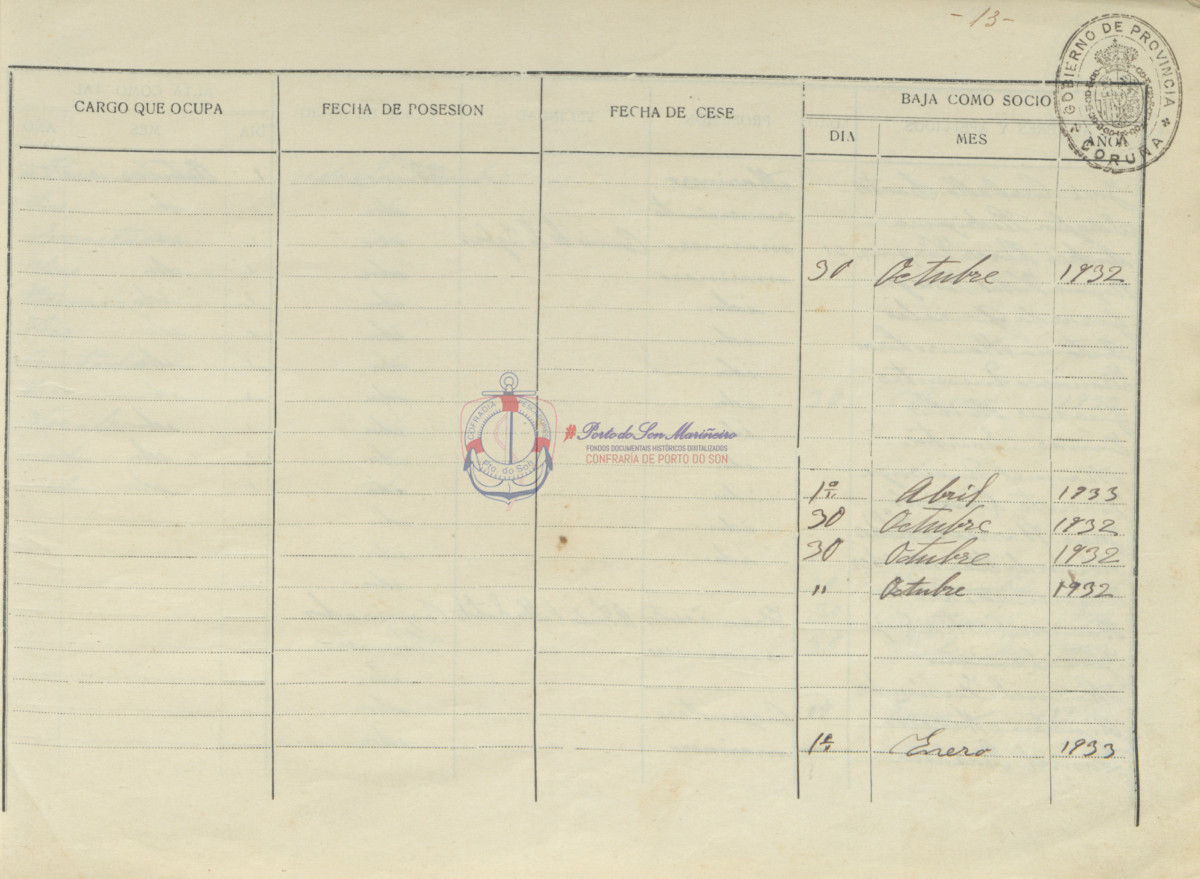 - 13 -
GOBIERNO DE PROVINCIA
CORUÑA
CARGO QUE OCUPA FECHA DE POSESION FECHA DE CESE BAJA COMO SOCIO
DIA MES AÑO
30 Octubre 1932
COFRADIA
Pto. do Son
#Porto do Son Mariñeiro
FONDOS DOCUMENTAIS HISTÓRICOS DIXITALIZADOS
CONFRARÍA DE PORTO DO SON
1º Abril 1933
30 Octubre 1932
30 Octubre 1932
" Octubre 1932
1º Enero 1933